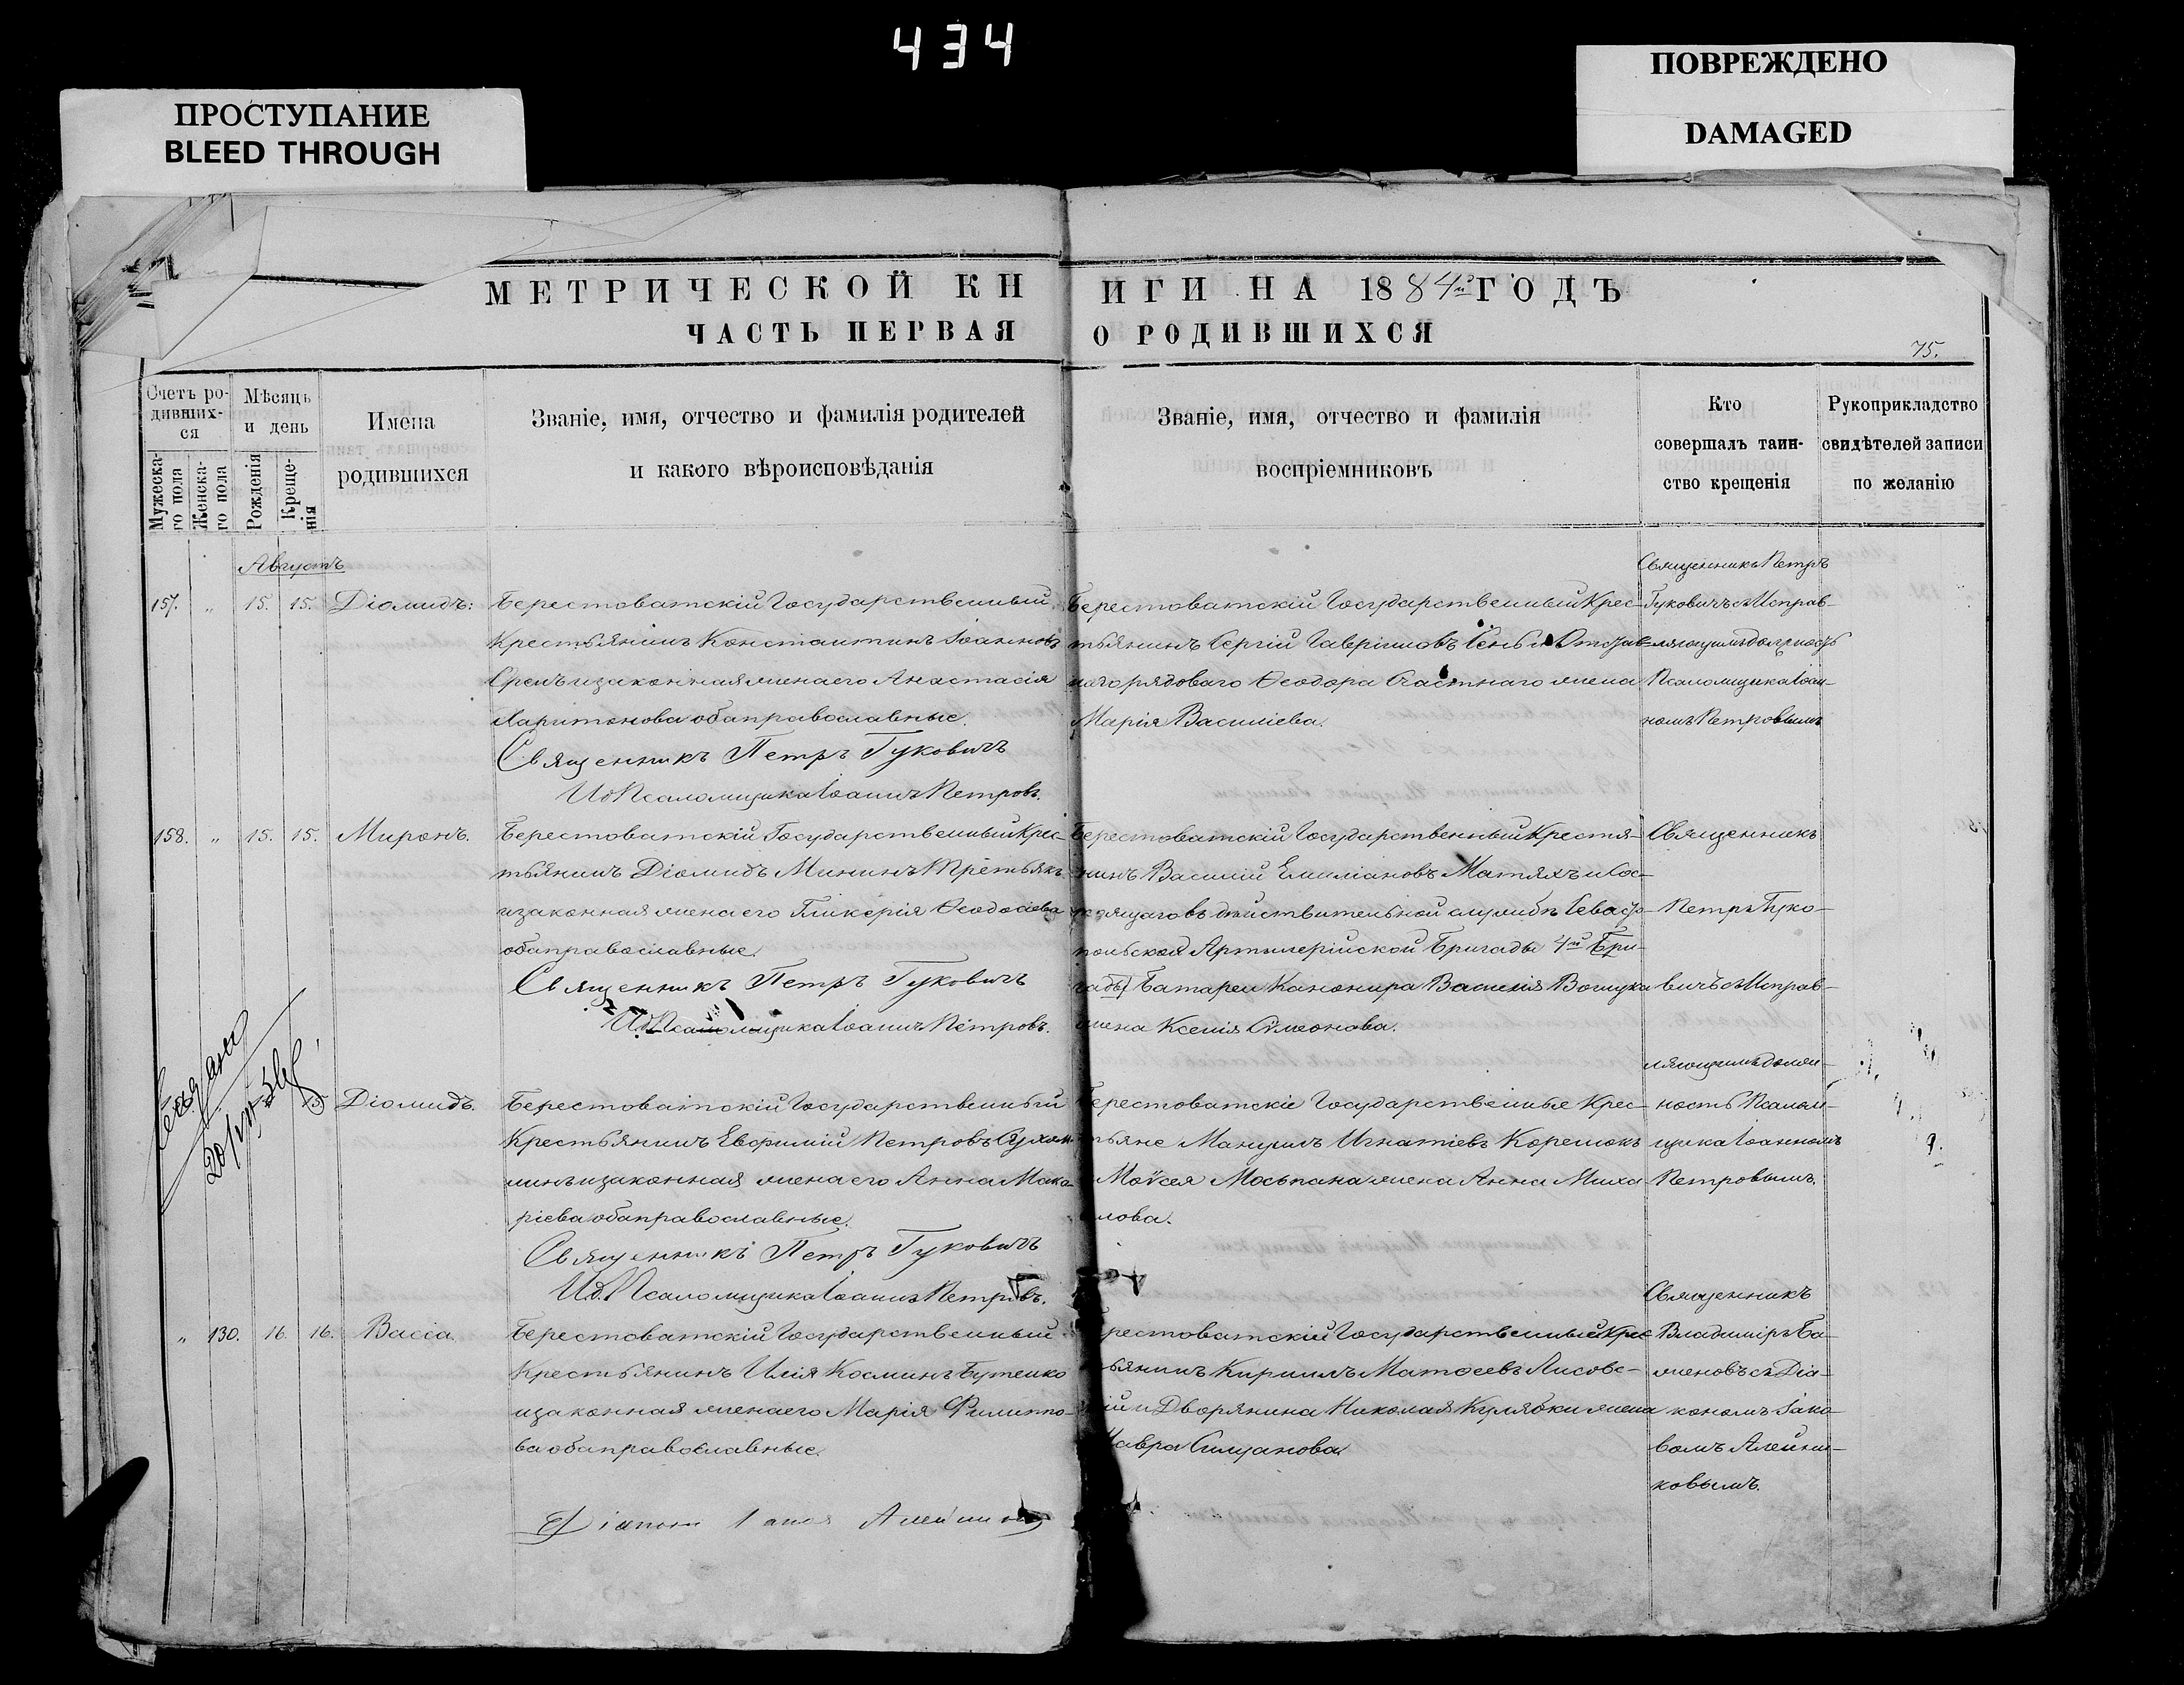 434
ПРОСТУПАНИЕ
BLEED THROUGH
ПОВРЕЖДЕНО
DAMAGED
МЕТРИЧЕСКОЙ КНИГИ НА 1884й ГОДЪ
ЧАСТЬ ПЕРВАЯ О РОДИВШИХСЯ
75.
Счетъ ро-
дивших-
ся
Мужеска-
го пола
Женска-
го пола
Мѣсяць
и день
Рожденія
Креще-
нія
Имена
родившихся
Званіе, имя, отчество и фамилія родителей
и какого вѣроисповѣданія
Званіе, имя, отчество и фамилія
воспріемниковъ
Кто
совершалъ таин-
ство крещенія
Рукоприкладство
свидѣтелей записи
по желанію
Августъ
157. " 15. 15. Діомидъ:
Берестоватскій Государственный
Крестьянинъ Константинъ Іоанновъ
и законная жена его Анастасія
Харитонова оба православные.
Священникъ Петръ Гуковичъ
Ид Псаломщика Іоаннъ Петровъ.
Берестоватскій Государственный Крес-
тьянинъ Сергій Гавріиловъ и Отстав-
наго рядоваго Ѳеодора жена
Марія Василіева.
Священникъ Петръ
Гуковичъ съ Исправ-
ляющимъ должность
Псаломщика Іоан-
номъ Петровымъ
158. " 15. 15. Миронъ.
Берестоватскій Государственный Крес-
тьянинъ Діомидъ Мининъ Третьякъ
и законная жена его Гликерія Ѳеодосіева
оба православные.
Священникъ Петръ Гуковичъ
Ид Псаломщика Іоаннъ Петровъ.
Берестоватскій Государственный Крестья-
нинъ Василій Емиліановъ Матяхъ и Сос-
тоящаго въ дѣйствительной службѣ Севасто-
польской Артилерійской Бригады 4й Бри-
гады Батареи Канонира Василія
жена Ксенія Симеонова.
Священникъ
Петръ Гуко-
вичъ съ Исправ-
ляющимъ долж-
ность Псалом-
щика Іоанномъ
Петровымъ.
15. Діомидъ
Берестоватскій Государственный
Крестьянинъ Евфимій Петровъ Сухом-
линъ и законная жена его Анна Мака-
ріева оба православные.
Священникъ Петръ Гуковичъ
Ид. Псаломщика Іоаннъ Петровъ.
Берестоватскіе Государственные Крес-
тьяне Мануилъ Игнатіевъ Корешокъ
Моѵсея Мосьпана жена Анна Миха-
лова.
" 130. 16. 16. Васса
Берестоватскій Государственный
Крестьянинъ Илія Косминъ Бутенко
и законная жена его Марія Филиппо-
ва оба православные.
Берестоватскій Государственный Крес-
тьянинъ Кириллъ Матѳеевъ Лисовс-
кій и Дворянина Николая Кулябки жена
Мавра
Священникъ
Владиміръ Ба-
женовъ съ Діа-
кономъ Іако-
вомъ Алейни-
ковымъ.
Діаконъ Іаковъ Алейниковъ